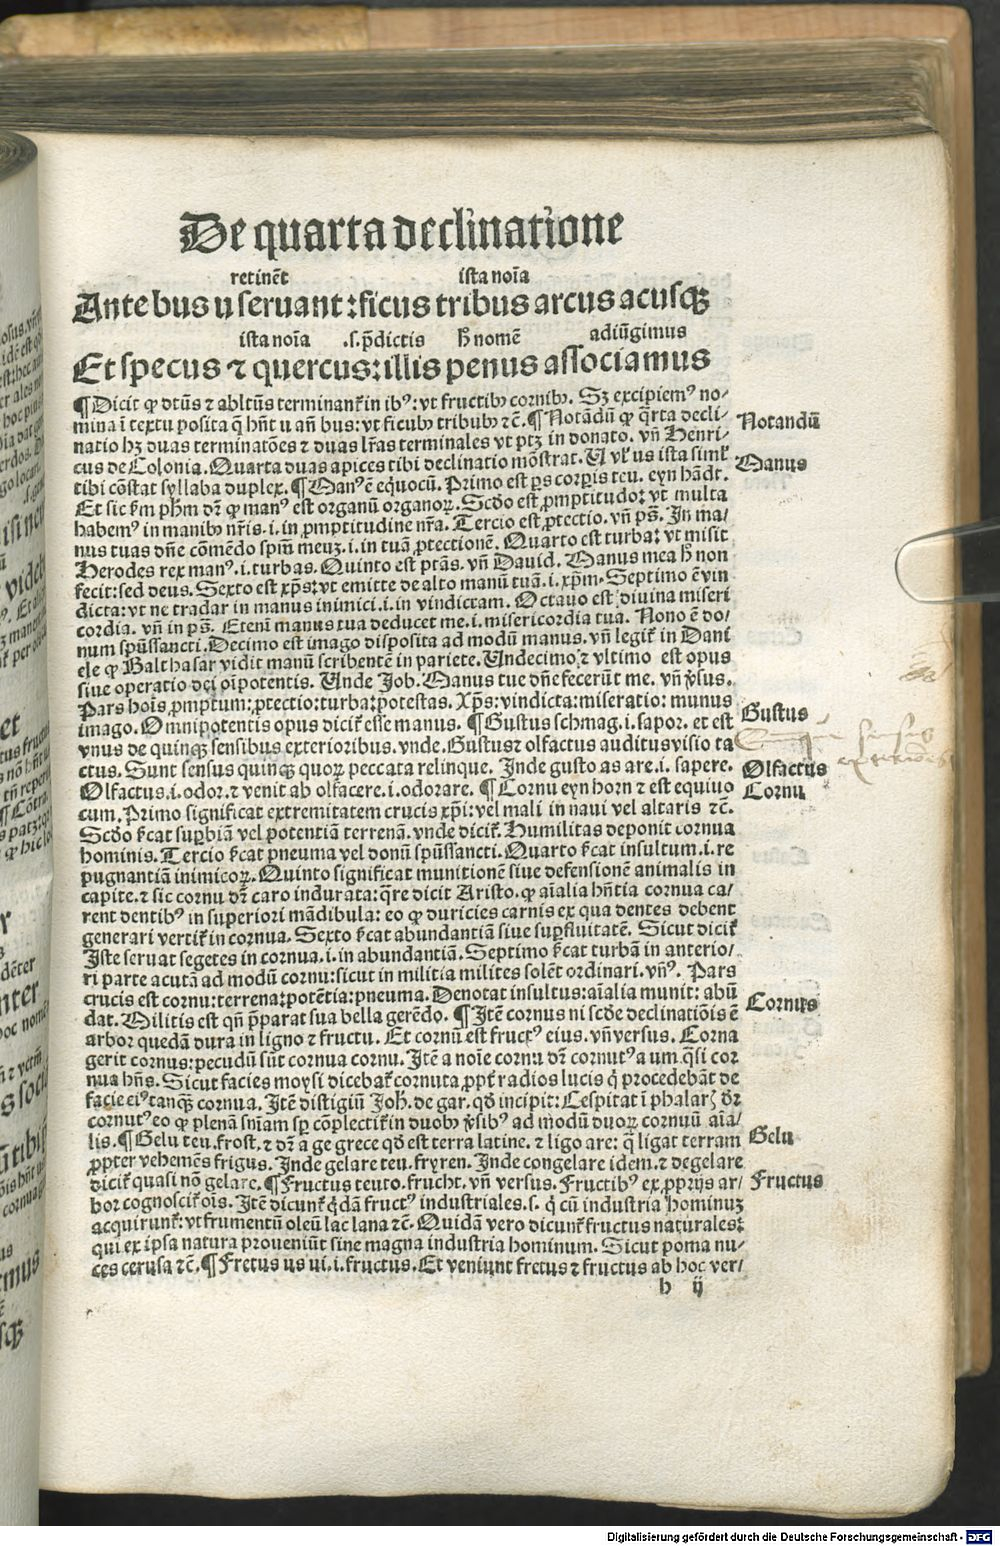 De quarta declinatione
retinēt ista noīa
Ante bus u seruant : ficus tribus arcus acusqꝫ
ista noīa .s. p̄dictis h̄ nomē adiūgimus
Et specus ⁊ quercus: illis penus associamus
¶ Dicit ꝙ dtūs ⁊ abltūs terminant̄ in ibꝰ: vt fructibꝰ cornibꝰ. Sꝫ excipiemꝰ no-
mina ī textu posita q̄ hn̄t u an̄ bus: vt ficubꝰ tribubꝰ ⁊c̄. ¶ Notādū ꝙ q̄rta decli-
natio hꝫ duas terminatōes ⁊ duas lr̄as terminales vt ptꝫ in donato. vn̄ Henri-
cus de Colonia. Quarta duas apices tibi declinatio mōstrat. U vl̓ us ista siml̓
tibi cōstat syllaba duplex. ¶ Manꝰ ē equocū. Primo est ps̄ corp̄is teu. eyn hādt.
Et sic ẜm ph̄m dr̄ ꝙ manꝰ est organū organoꝝ. Scd̄o est ꝓmptitudo: vt multa
habemꝰ in manibꝰ nr̄is .i. in ꝓmptitudine nr̄a. Tercio est ꝓtectio. vn̄ ps̄. In ma-
nus tuas dn̄e cōmēdo spm̄ meuꝫ .i. in tuā ꝓtectionē. Quarto est turba: vt misit
Herodes rex manꝰ .i. turbas. Quinto est ptās. vn̄ David. Manus mea h̄ non
fecit: sed deus. Sexto est xp̄s: vt emitte de alto manū tuā .i. xp̄m. Septimo ē vin
dicta: vt ne tradar in manus inimici .i. in vindictam. Octauo est diuina miseri
cordia. vn̄ in ps̄. Etenī manus tua deducet me .i. misericordia tua. Nono ē do-
num spūssancti. Decimo est imago disposita ad modū manus. vn̄ legit̄ in Dani
ele ꝙ Balthasar vidit manū scribentē in pariete. Undecimo ⁊ vltimo est opus
siue operatio dei oīpotentis. Unde Job. Manus tue dn̄e fecerūt me. vn̄ ꝟsus.
Pars hoīs ꝓmptum: ꝓtectio: turba: potestas. Xp̄s: vindicta: miseratio: munus
imago. Omnipotentis opus dicit̄ esse manus. ¶ Gustus schmag .i. sapor. et est
vnus de quinqꝫ sensibus exterioribus. vnde. Gustus ⁊ olfactus auditus visio ta
ctus. Sunt sensus quinqꝫ quoꝝ peccata relinque. Inde gusto as are .i. sapere.
Olfactus .i. odor. ⁊ venit ab olfacere .i. odorare. ¶ Cornu eyn horn ⁊ est equiuo
cum. Primo significat extremitatem crucis xp̄i: vel mali in naui vel altaris ⁊c̄.
Scd̄o ẜcat supbiā vel potentiā terrenā. vnde dicit̄. Humilitas deponit cornua
hominis. Tercio ẜcat pneuma vel donū spūssancti. Quarto ẜcat insultum .i. re
pugnantiā inimicoꝝ. Quinto significat munitionē siue defensionē animalis in
capite. ⁊ sic cornu dr̄ caro indurata: q̄re dicit Aristo. ꝙ aīalia hn̄tia cornua ca-
rent dentibꝰ in superiori mādibula: eo ꝙ duricies carnis ex qua dentes debent
generari vertit̄ in cornua. Sexto ẜcat abundantiā siue supfluitatē. Sicut dicit̄
Iste seruat segetes in cornua .i. in abundantiā. Septimo ẜcat turbā in anterio-
ri parte acutā ad modū cornu: sicut in militia milites solēt ordinari. vn̄ꝰ. Pars
crucis est cornu: terrena: potētia: pneuma. Denotat insultus: aīalia munit: abū
dat. Militis est qn̄ p̄parat sua bella gerēdo. ¶ Itē cornus ni scd̄e declinatiōis ē
arbor quedā dura in ligno ⁊ fructu. Et cornū est fructꝰ eius. vn̄ versus. Corna
gerit cornus: pecudū sūt cornua cornu. Itē a noīe cornu dr̄ cornutꝰ a um. q̄si cor
nua hn̄s. Sicut facies moysi dicebat̄ cornuta ꝓpt̄ radios lucis q̓ procedebāt de
facie eiꝰ tanqꝫ cornua. Itē distigiū Joh̄. de gar. qd̄ incipit: Cespitat ī phalar̄ dr̄
cornutꝰ eo ꝙ plenā sn̄iam sp̄ cōplectit̄ in duobꝰ ꝟsibꝰ ad modū duoꝝ cornuū aīa-
lis. ¶ Gelu teu. frost. ⁊ dr̄ a ge grece qd̄ est terra latine. ⁊ ligo are: q̓ ligat terram
ꝓpter vehemēs frigus. Inde gelare teu. fryren. Inde congelare idem. ⁊ degelare
dicit̄ quasi nō gelare. ¶ Fructus teuto. frucht. vn̄ versus. Fructibꝰ ex ꝓprijs ar-
bor cognoscit̄ oīs. Itē dicunt̄ q̓dā fructꝰ industriales .s. q̓ cū industria hominuꝫ
acquirunt̄: vt frumentū oleū lac lana ⁊c̄. Quidā vero dicunt̄ fructus naturales:
qui ex ipsa natura proueniūt sine magna industria hominum. Sicut poma nu-
ces cerusa ⁊c̄. ¶ Fretus us ui .i. fructus. Et veniunt fretus ⁊ fructus ab hoc ver-
h ij
Notandū
Manus
Gustus
Olfactus
Cornu
Cornus
Gelu
Fructus
Digitalisierung gefördert durch die Deutsche Forschungsgemeinschaft - DFG